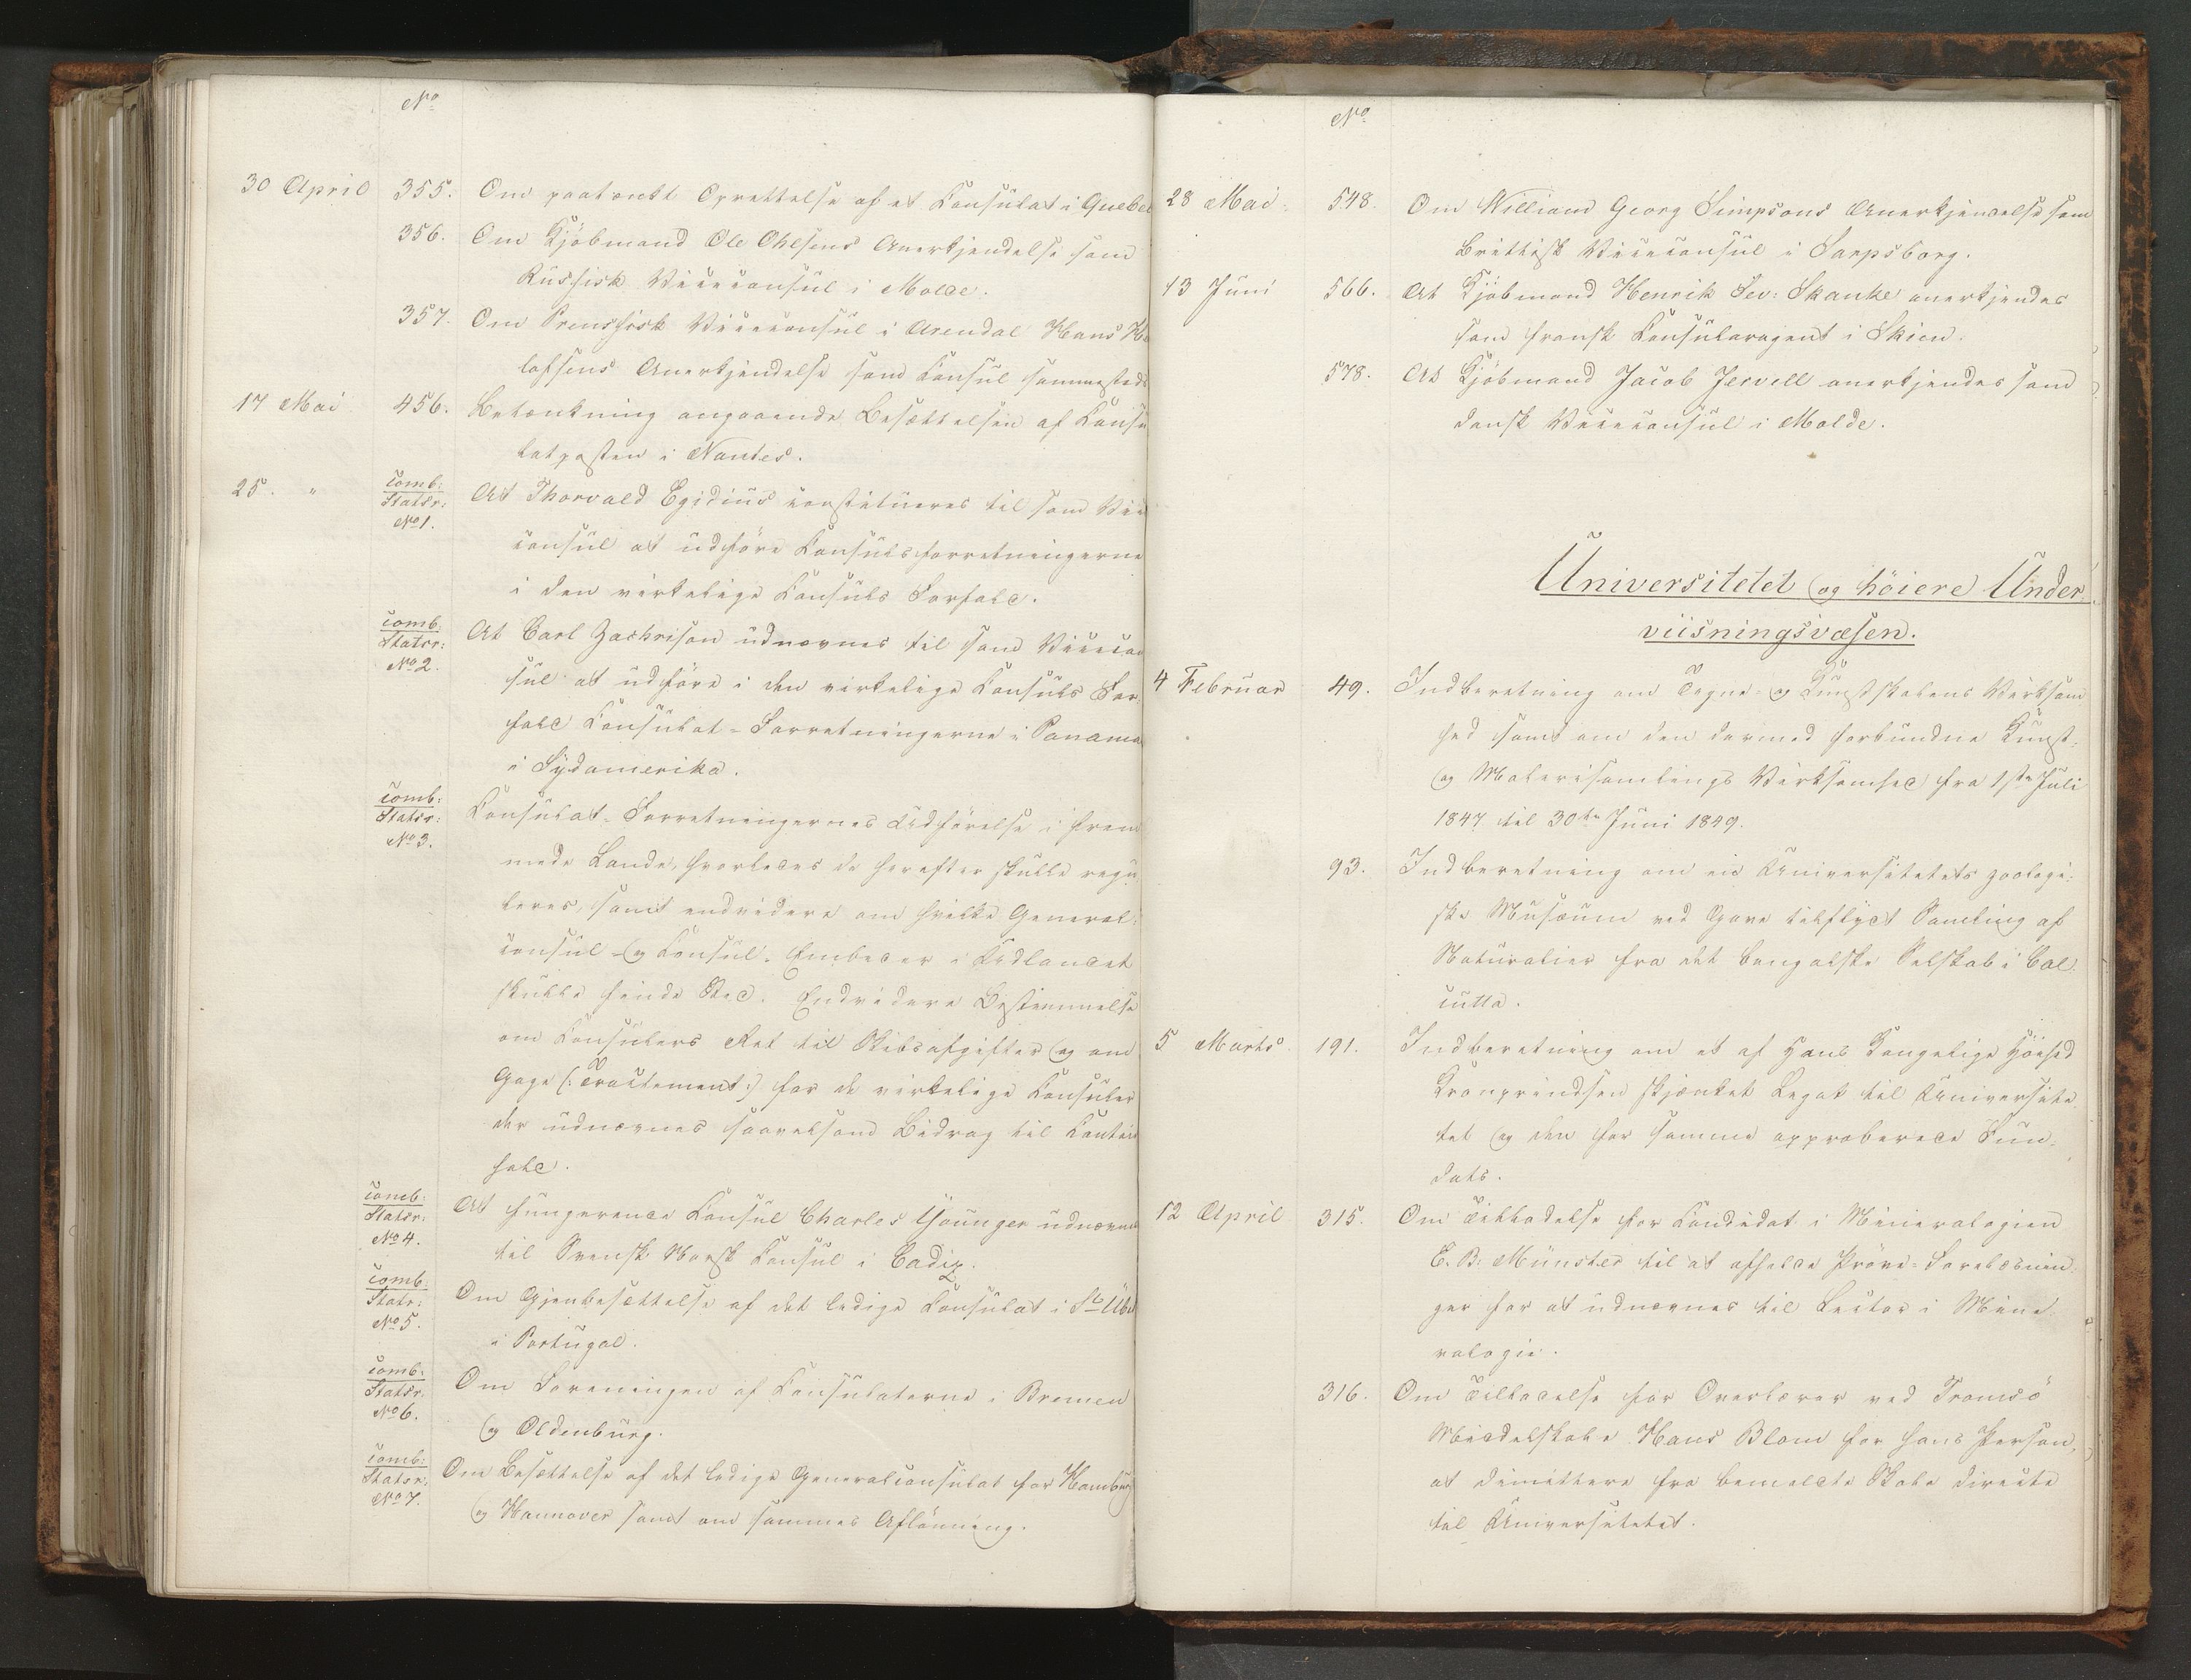 No
30 April 355. Om paatænkt Oprettelse af et Consulat i Quebec
356. Om Kjöbmand Ole Ohlsens Anerkjendelse som
Russisk Viceconsul i Molde.
357. Om Preussisk Viceconsul i Arendal Hans He
lofsens Anerkjendelse som Consul sammesteds
17 Mai 456. Betænkning angaaende Besættelsen af Consu
latposten i Nantes.
25. " Comb: Statsr: No 1. At Thorvald Egidius constitueres til som Vice
consul at udföre Consulsforretningerne
i den virkelige Consuls Forfald.
Comb: Statsr: No 2. At Carl Zachrison udnævnes til som Vicecon
sul at udföre i den virkelige Consuls For
fald Consulat-Forretningerne i Panama
i Sydamerika.
Comb: Statsr: No 3. Consulat-Forretningernes Udförelse i frem
mede Lande, hvorledes de herefter skulle regu
leres, samt endvidere om hvilke General-
consul- og Consul-Embeder i Udlandet
skulle finde Sted. Endvidere Bestemmelse
om Consulers Ret til Skibsafgifter og om
Gage (: Tractement :) for de virkelige Consuler
der udnævnes saavelsom Bidrag til Contoir
hold.
Comb: Statsr: No 4. At fungerende Consul Charles Younger udnævnes
til Svensk Norsk Consul i Cadix.
Comb: Statr: No 5. Om Gjenbesættelse af det ledige Consulat i St Übes
i Portugal.
Comb: Statsr. No 6. Om Foreningen af Consulaterne i Bremen
og Oldenburg.
Comb: Statsr: No 7. Om Besættelse af det ledige Generalconsulat for Hamburg
og Hannover samt om sammes Aflönning.
No
28 Mai 548. Om William Georg Simpsons Anerkjendelse som
Brittisk Viceconsul i Sarpsborg.
13 Juni 566. At Kjöbmand Henrik Sev: Skanke anerkjendes
som fransk Consularagent i Skien.
578. At Kjöbmand Jacob Jervell anerkjendes som
dansk Viceconsul i Molde.
Universitetet og höiere Under-
viisningsvæsen.
4 Februar 49. Indberetning om Tegne- og Kunstskolens Virksom
hed samt om den dermed forbundne Kunst-
og Malerisamlings Virksomhed fra 1ste Juli
1847 til 30te Juni 1849.
93. Indberetning om en Universitetets zoologi-
ske Musæum ved Gave tilflydt Samling af
Naturalier fra det bengalske Selskab i Cal
cutta.
5 Marts 191. Indberetning om et af Hans Kongelige Höihed
Kronprindsen skjænket Legat til Universite
tet og den for samme approberede Fun-
dats.
12 April 315. Om Tilladelse for Candidat i Mineralogien
E. B. Münster til at afholde Pröve-Forelæsnin-
ger for at udnævnes til Lector i Mine-
ralogie.
316. Om Tilladelse for Overlærer ved Tromsö
Middelskole Hans Blom for hans Person,
at dimittere fra bemeldte Skole directe
til Universitetet.